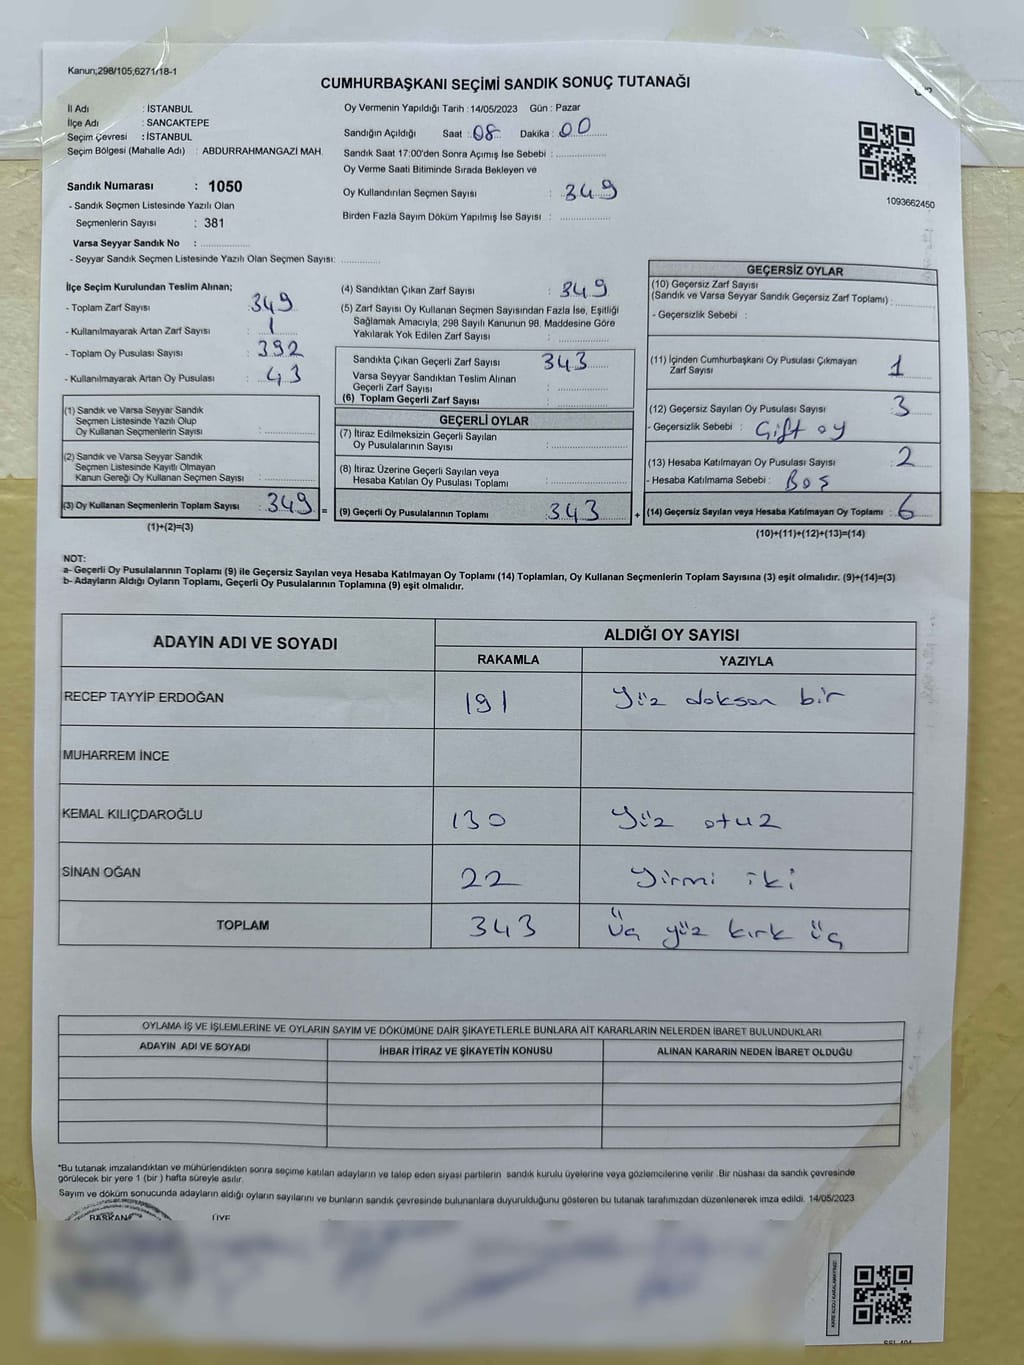 Kanun;298/105;6271/18-1
CUMHURBAŞKANI SEÇİMİ SANDIK SONUÇ TUTANAĞI
İl Adı : İSTANBUL
İlçe Adı : SANCAKTEPE
Seçim Çevresi : İSTANBUL
Seçim Bölgesi (Mahalle Adı) : ABDURRAHMANGAZİ MAH.
Sandık Numarası : 1050
- Sandık Seçmen Listesinde Yazılı Olan
Seçmenlerin Sayısı : 381
Varsa Seyyar Sandık No : ..............
- Seyyar Sandık Seçmen Listesinde Yazılı Olan Seçmen Sayısı: ............
Oy Vermenin Yapıldığı Tarih : 14/05/2023 Gün : Pazar
Sandığın Açıldığı Saat : 08 Dakika : 00
Sandık Saat 17:00'den Sonra Açımış İse Sebebi : ..............
Oy Verme Saati Bitiminde Sırada Bekleyen ve
Oy Kullandırılan Seçmen Sayısı : 349
Birden Fazla Sayım Döküm Yapılmış İse Sayısı : ..............
1093662450
İlçe Seçim Kurulundan Teslim Alınan;
- Toplam Zarf Sayısı : 349
- Kullanılmayarak Artan Zarf Sayısı : 1
- Toplam Oy Pusulası Sayısı : 392
- Kullanılmayarak Artan Oy Pusulası : 43
(1) Sandık ve Varsa Seyyar Sandık
Seçmen Listesinde Yazılı Olup
Oy Kullanan Seçmenlerin Sayısı : ..............
(2) Sandık ve Varsa Seyyar Sandık
Seçmen Listesinde Kayıtlı Olmayan
Kanun Gereği Oy Kullanan Seçmen Sayısı : ..............
(3) Oy Kullanan Seçmenlerin Toplam Sayısı : 349 =
(1)+(2)=(3)
(4) Sandıktan Çıkan Zarf Sayısı : 349
(5) Zarf Sayısı Oy Kullanan Seçmen Sayısından Fazla İse, Eşitliği
Sağlamak Amacıyla; 298 Sayılı Kanunun 98. Maddesine Göre
Yakılarak Yok Edilen Zarf Sayısı : ..............
Sandıkta Çıkan Geçerli Zarf Sayısı 343
Varsa Seyyar Sandıktan Teslim Alınan
Geçerli Zarf Sayısı : ..............
(6) Toplam Geçerli Zarf Sayısı : ..............
GEÇERLİ OYLAR
(7) İtiraz Edilmeksizin Geçerli Sayılan
Oy Pusulalarının Sayısı : ..............
(8) İtiraz Üzerine Geçerli Sayılan veya
Hesaba Katılan Oy Pusulası Toplamı : ..............
(9) Geçerli Oy Pusulalarının Toplamı : 343 +
GEÇERSİZ OYLAR
(10) Geçersiz Zarf Sayısı
(Sandık ve Varsa Seyyar Sandık Geçersiz Zarf Toplamı) : ........
- Geçersizlik Sebebi :
(11) İçinden Cumhurbaşkanı Oy Pusulası Çıkmayan
Zarf Sayısı : 1
(12) Geçersiz Sayılan Oy Pusulası Sayısı : 3
- Geçersizlik Sebebi : Çift oy
(13) Hesaba Katılmayan Oy Pusulası Sayısı : 2
- Hesaba Katılmama Sebebi : Boş
(14) Geçersiz Sayılan veya Hesaba Katılmayan Oy Toplamı : 6
(10)+(11)+(12)+(13)=(14)
NOT:
a- Geçerli Oy Pusulalarının Toplamı (9) ile Geçersiz Sayılan veya Hesaba Katılmayan Oy Toplamı (14) Toplamları, Oy Kullanan Seçmenlerin Toplam Sayısına (3) eşit olmalıdır. (9)+(14)=(3)
b- Adayların Aldığı Oyların Toplamı, Geçerli Oy Pusulalarının Toplamına (9) eşit olmalıdır.
ADAYIN ADI VE SOYADI
ALDIĞI OY SAYISI
RAKAMLA YAZIYLA
RECEP TAYYİP ERDOĞAN 191 Yüz doksan bir
MUHARREM İNCE
KEMAL KILIÇDAROĞLU 130 Yüz otuz
SİNAN OĞAN 22 Yirmi iki
TOPLAM 343 Üç yüz kırk üç
OYLAMA İŞ VE İŞLEMLERİNE VE OYLARIN SAYIM VE DÖKÜMÜNE DAİR ŞİKAYETLERLE BUNLARA AİT KARARLARIN NELERDEN İBARET BULUNDUKLARI
ADAYIN ADI VE SOYADI İHBAR İTİRAZ VE ŞİKAYETİN KONUSU ALINAN KARARIN NEDEN İBARET OLDUĞU
*Bu tutanak imzalandıktan ve mühürlendikten sonra seçime katılan adayların ve talep eden siyasi partilerin sandık kurulu üyelerine veya gözlemcilerine verilir .Bir nüshası da sandık çevresinde
görülecek bir yere 1 (bir ) hafta süreyle asılır.
Sayım ve döküm sonucunda adayların aldığı oyların sayılarını ve bunların sandık çevresinde bulunanlara duyurulduğunu gösteren bu tutanak tarafımızdan düzenlenerek imza edildi. 14/05/2023
BAŞKAN ÜYE